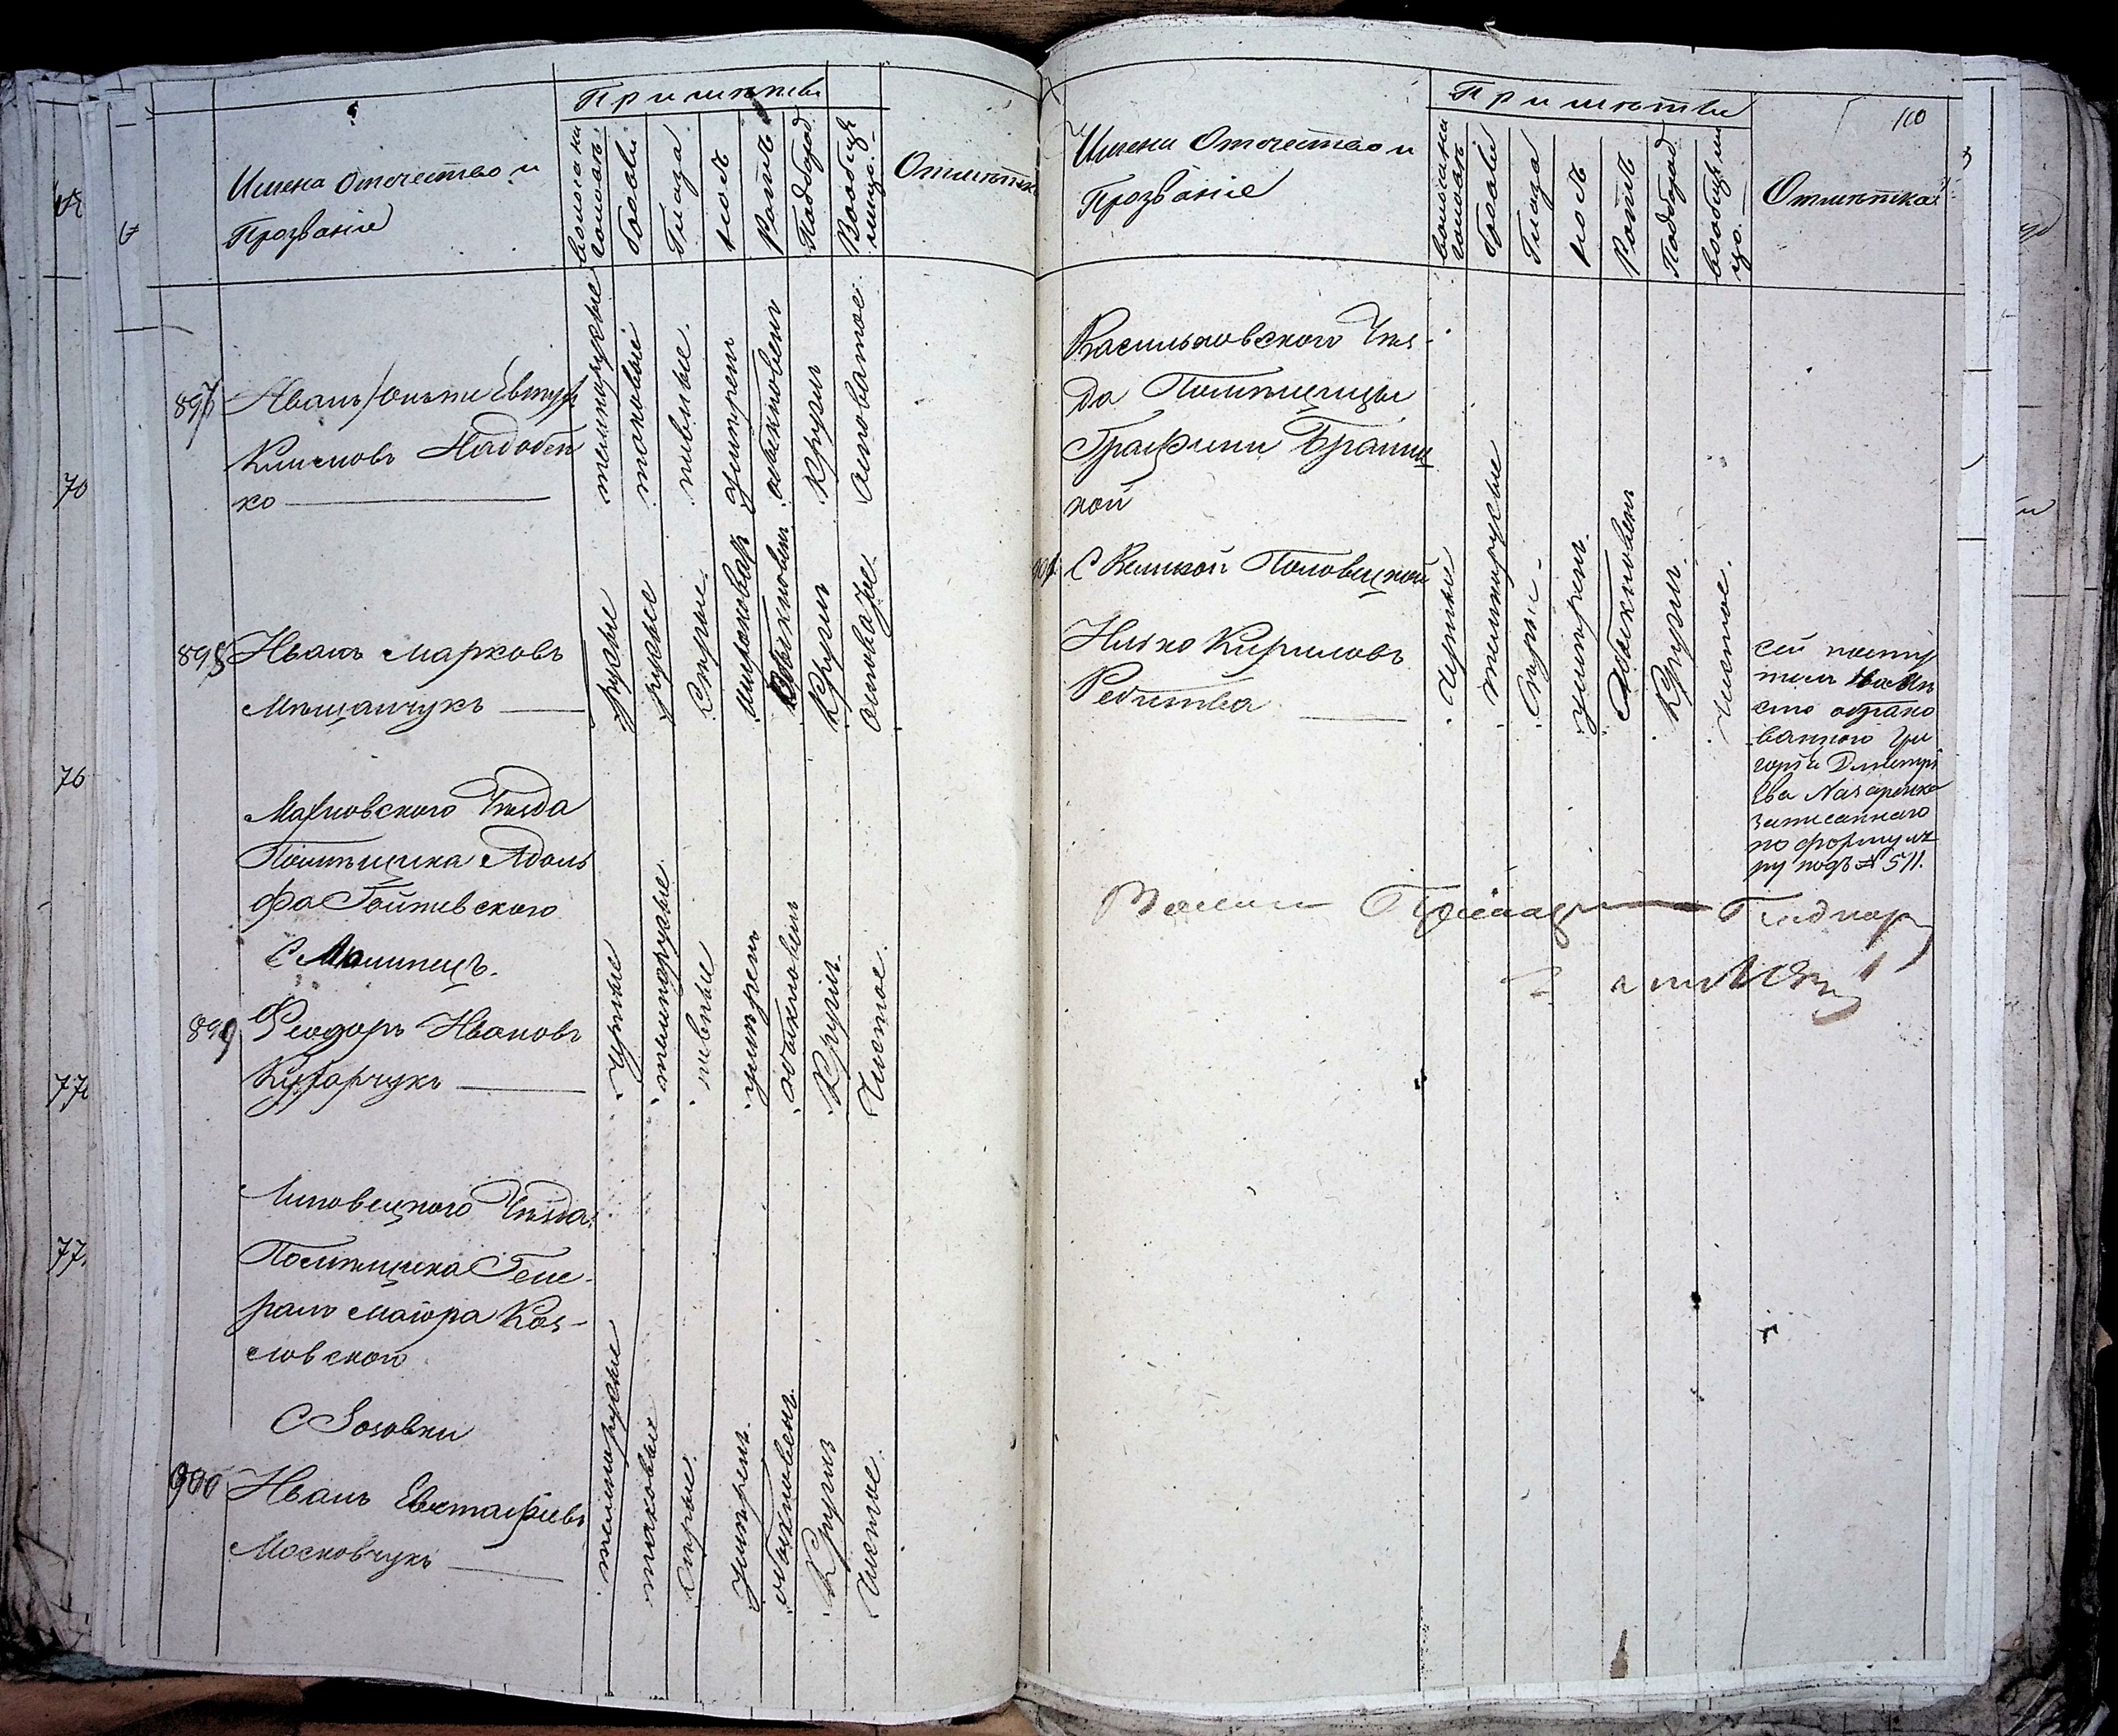 Приметы
Имена Отечество и
Прозваніе
волоса на
голове
брови
Глаза
носъ
Ротъ
Подбород
Вообще
лицо
Отметка
897
Иванъ
Климовъ Надобен
ко
темнорусые
таковые
пивные
умерен
обыкновен
кругл
осповатое
898 Иванъ Марковъ
Мещанчукъ
русые
русые
Серые
обыкновен
кругл
осповатое
Махновского Уезда
Помещика Адоль
фа
С
899 Феодоръ Ивановъ
Кухарчукъ
Черные
темнорусые
пивные
умерен
обыкновен
Кругл
Чистое
Липовецкого Уезда
Помещика Гене-
ралъ маіора Коз-
ловского
С Зозовки
900 Иванъ Евстафіевъ
Московчукъ
темнорусые
таковые
Серые
Умерен
обыкновен
Кругл
Чистое
110
Приметы
Имена Отечество и
Прозваніе
волоса на
голове
брови
Глаза
носъ
Ротъ
Подбород
вообще ли
цо
Отметка
Васильковского Уез-
да Помещицы
Графини Браниц
кой
901 С Великой Половецкой
Илько Кириловъ
Черные
темнорусые
Серые
умерен
Обыкновен
Кругл
Чистое
сей посту
пилъ на Ме
сто обрако
ванного Гри
горія Дмитрі
ева Назаренка
записанного
по формуля
ру подъ № 511.